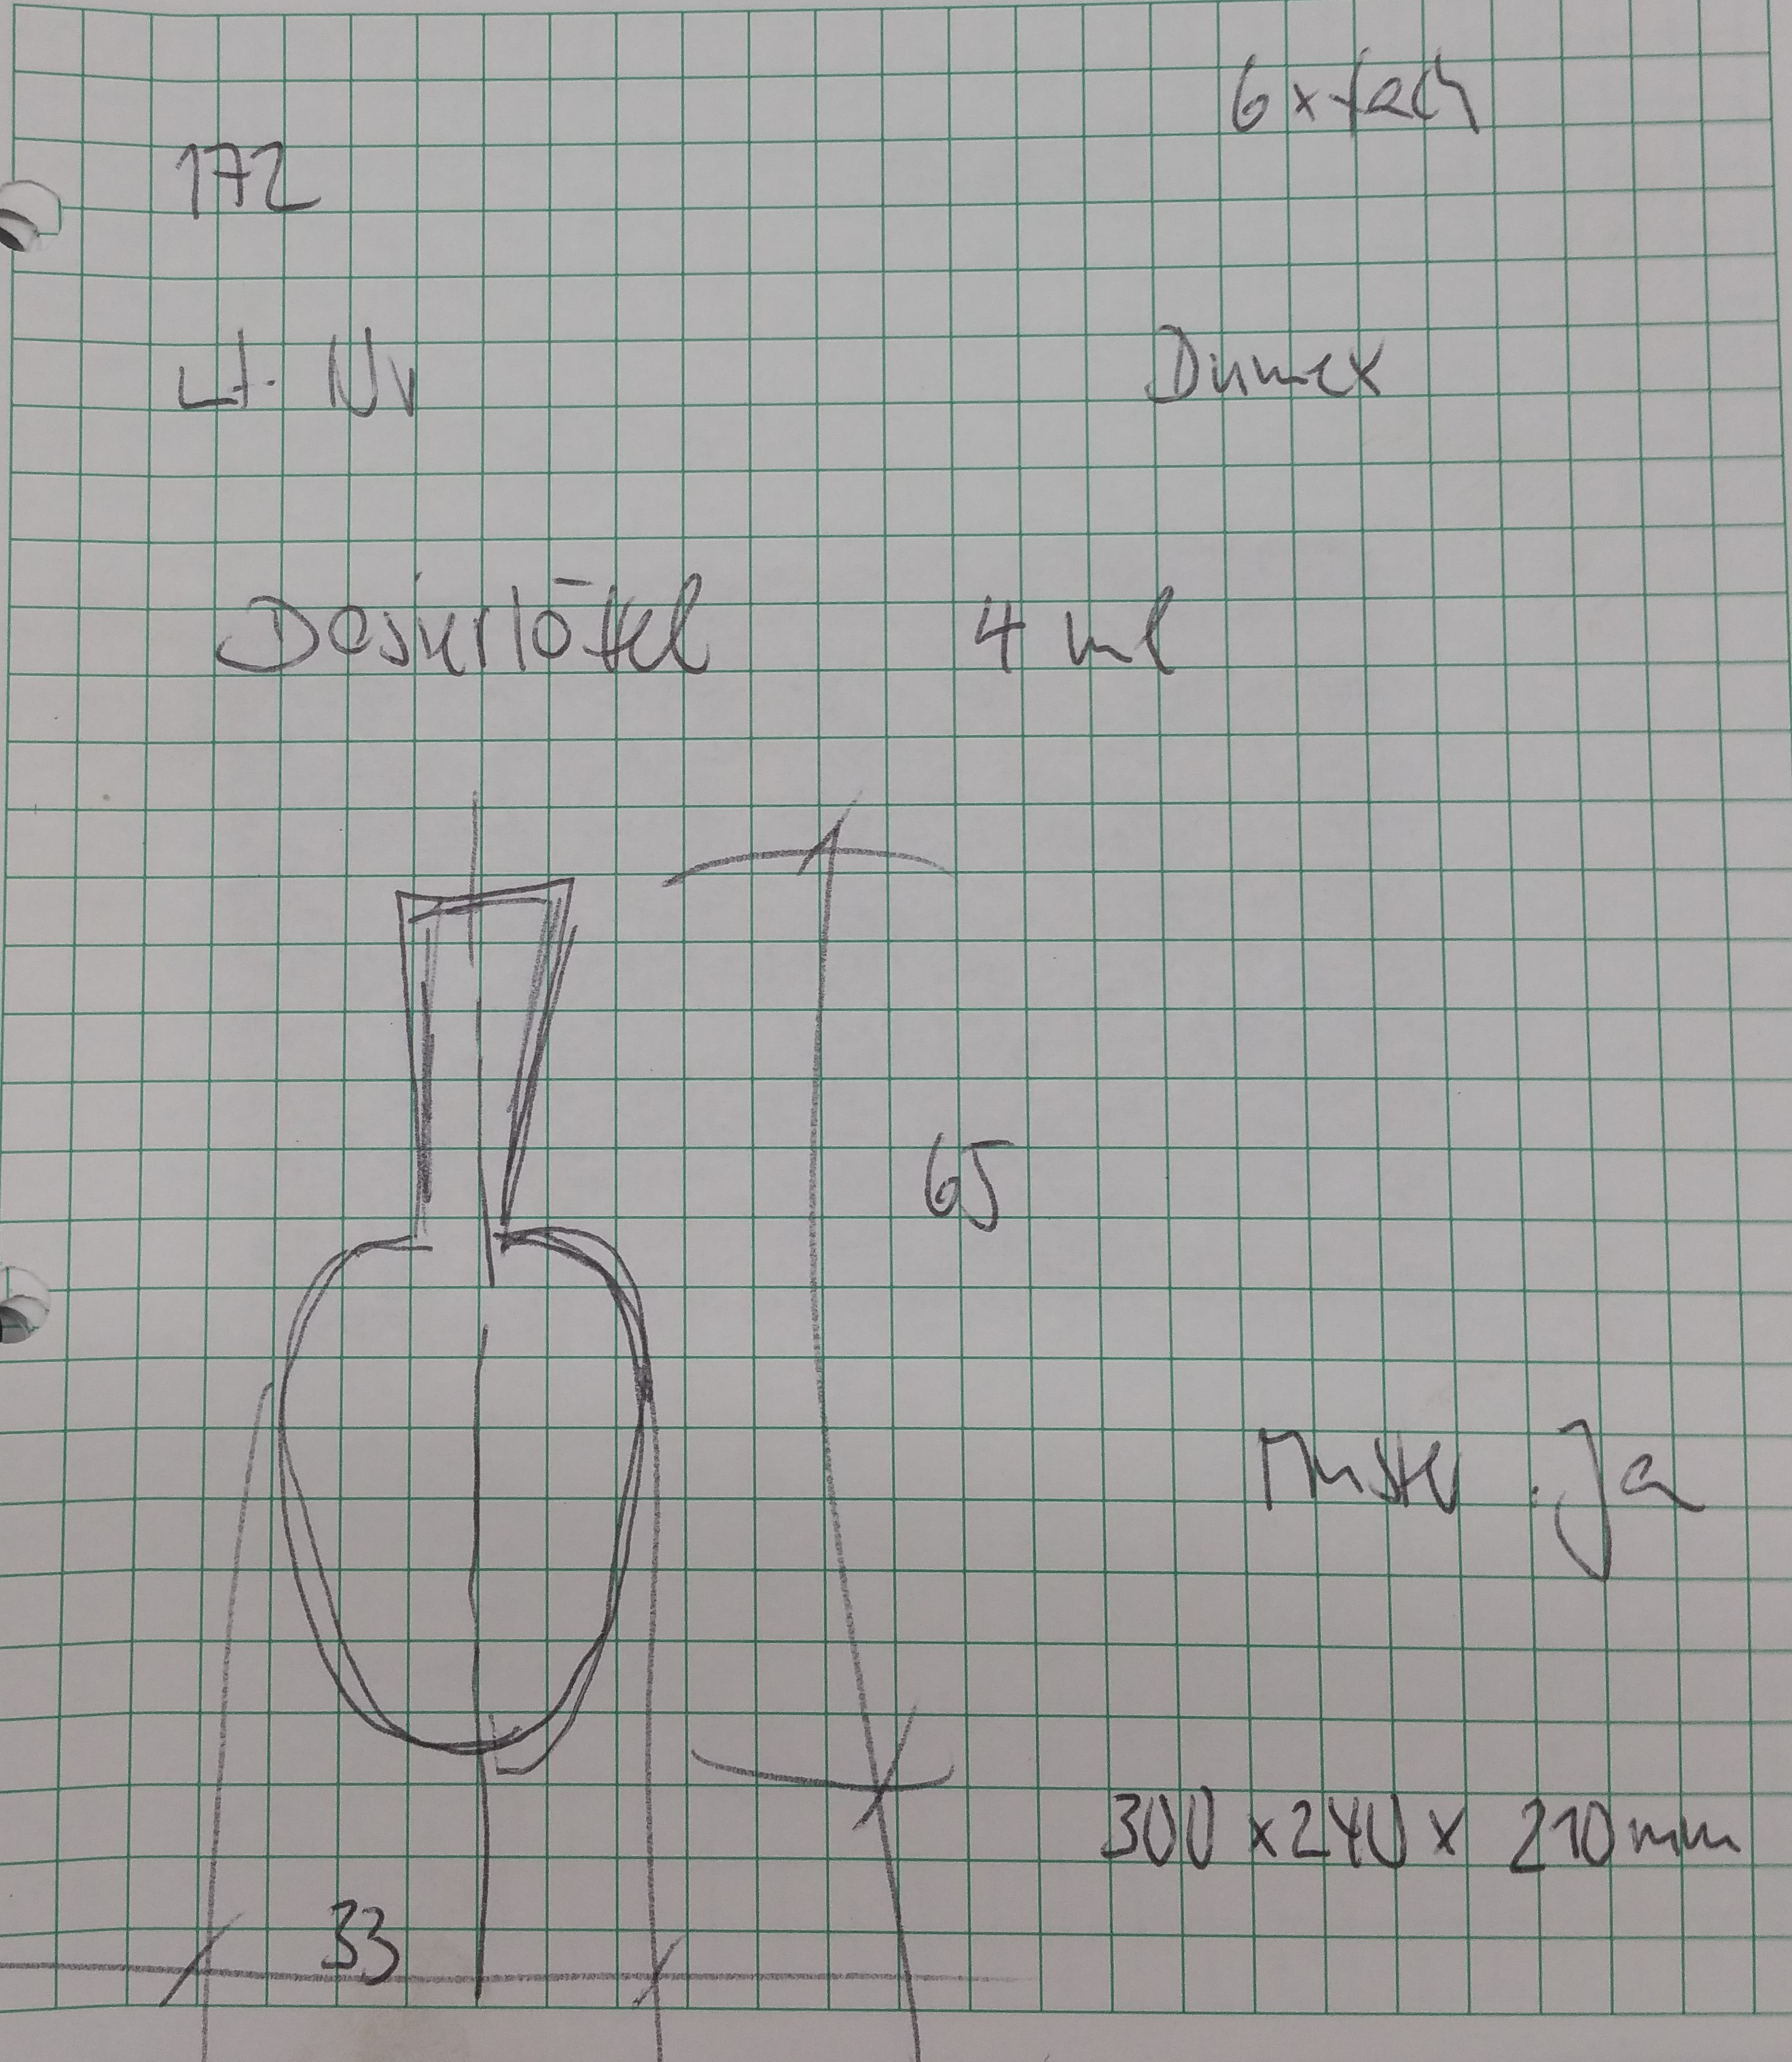 6 x fach
172
Lf. Nr
Dumex
Dosierlöffel 4 ml
65
Muster : Ja
300 x 240 x 210 mm
33